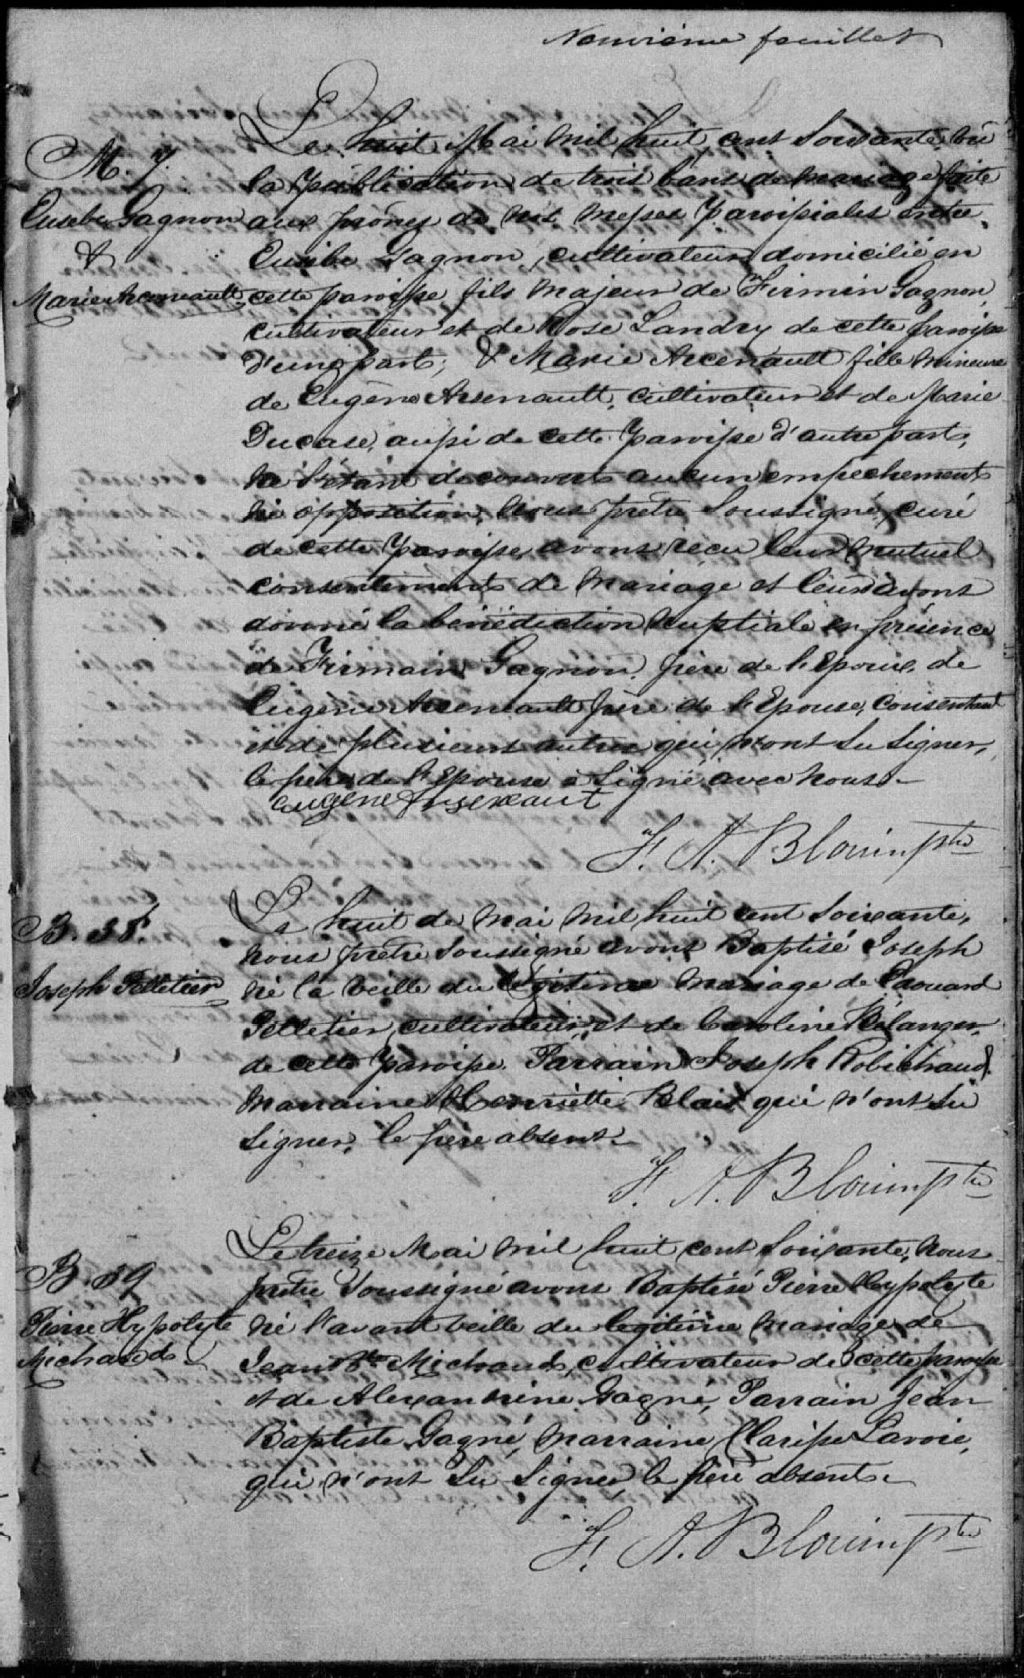 Neuvième feuillet
M. 7.
Eusebe Gagnon
&
Marie Arcenault
Le huit Mai mil huit cent soixante vu
la publication de trois bans de mariage faite
aux prônes de nos messes Paroissiales entre
Eusèbe Gagnon, cultivateur domicilié en
cette paroisse fils majeur de Firmin Gagnon,
cultivateur et de Rose Landry de cette paroisse
d'une part; & Marie Arcenault fille mineure
de Eugène Arsenault, cultivateur et de Marie
Ducase, aussi de cette Paroisse d'autre part,
ne s'étant découvert aucun empêchement
ni opposition, Nous prêtre soussigné, curé
de cette Paroisse, avons reçu leur mutuel
consentement de mariage et leur avons
donné la bénédiction nuptiale en présence
de Firmain Gagnon, père de l'Epoux, de
Eugène Arcenault père de l'Epouse, consentant
et de plusieurs autres qui n'ont su signer,
le père de l'Epouse a signé avec nous.
eugène Arseneaut
F. A. Blouin Ptre
B. 38.
Joseph Pelletier
Le huit de mai mil huit cent soixante,
nous prêtre soussigné avons Baptisé Joseph
né la veille du légitime mariage de Edouard
Pelletier, cultivateur, et de Caroline Bélanger
de cette Paroisse. Parrain Joseph Robichaud
Marraine Henriette Blais qui n'ont su
signer, le père absent.
F. A. Blouin Ptre
B 39
Pierre Hypolyte
Michaud
Le treize Mai mil huit cent soixante, nous
prêtre soussigné avons Baptisé Pierre Hypolyte
né l'avant veille du légitime mariage de
Jean Bte Michaud, cultivateur de cette paroisse
et de Alexandrine Gagné, Parrain Jean
Baptiste Gagné, marraine Clarisse Lavoie,
qui n'ont su signer, le père absent.
F. A. Blouin Ptre